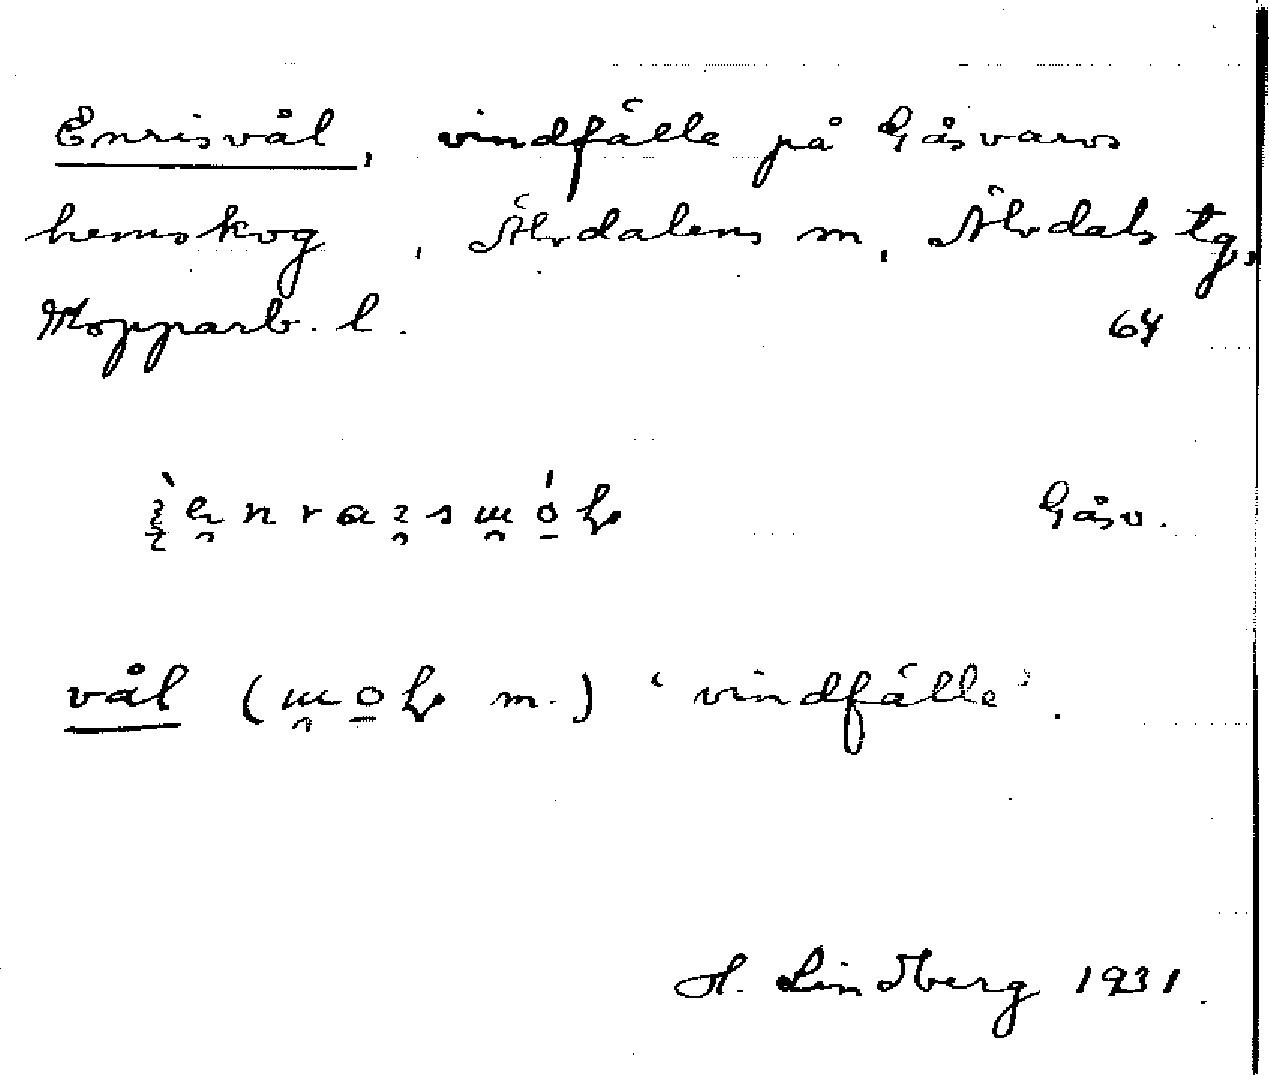 Enrisvål, vindfälle på Gåsvarvs
hemskog, Älvdalens sn, Älvdals tg,
Kopparb. l. 64
Gåsv.
vål ( m.) ‘vindfälle’.
H. Lindberg 1931.